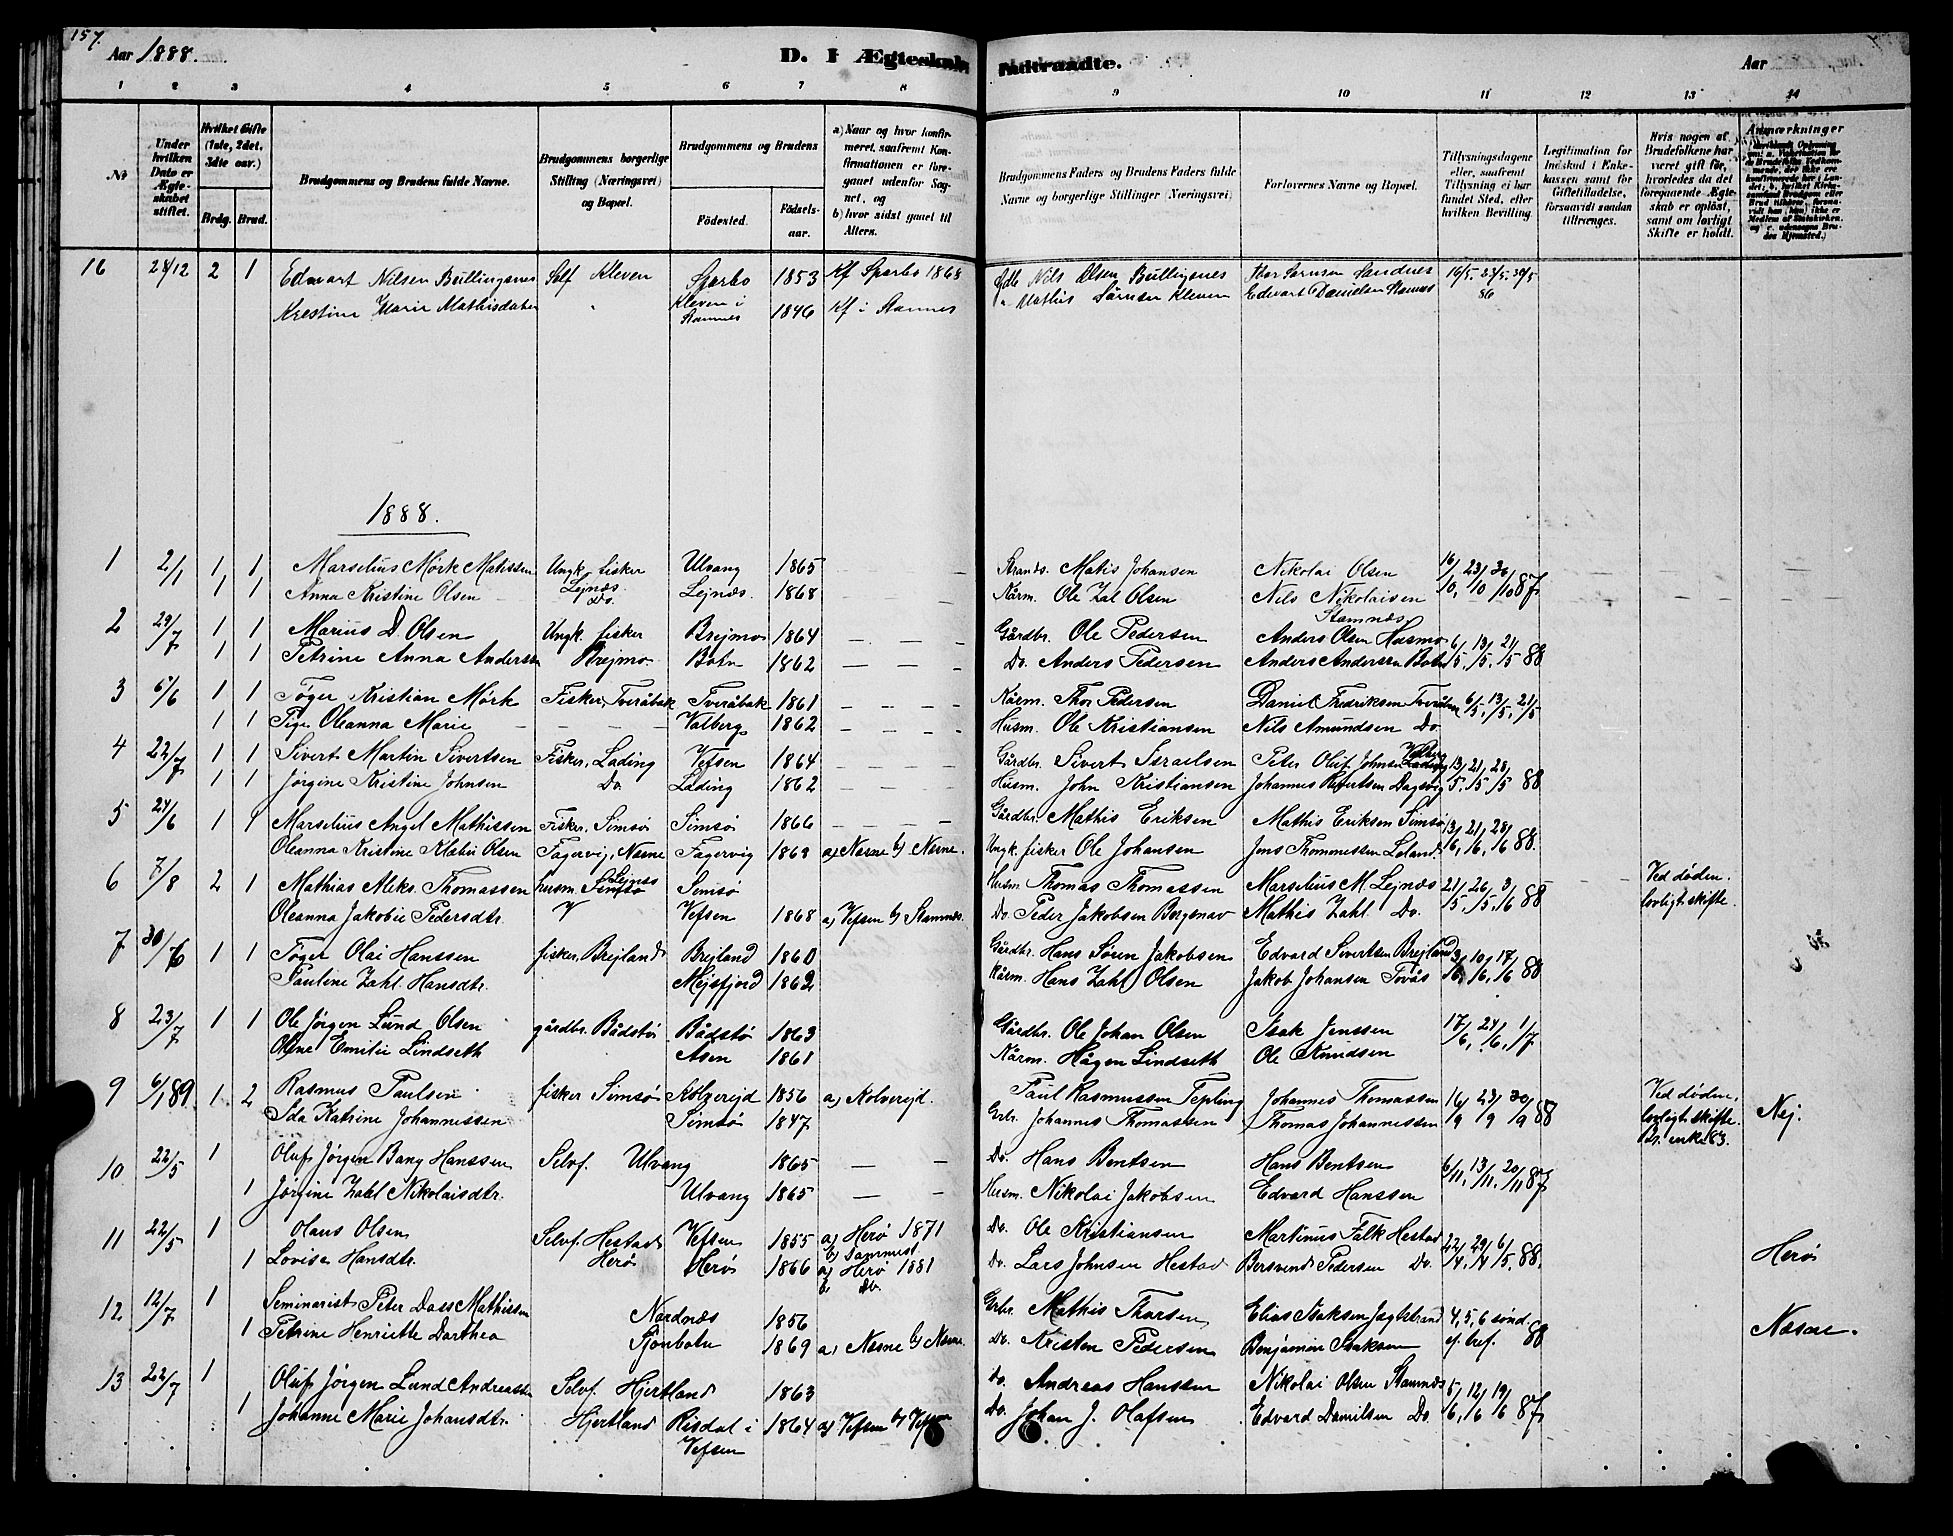 157.
Aar 1888.
D. I Ægteskab Indtraadte.
Aar
1 2 3 4 5 6 7 8 9 10 11 12 13 14
No
Under hvilken Dato er Ægteskabet stiftet.
Hvilket Gifte (1ste, 2det, 3die osv.)
Brdg. Brud.
Brudgommens og Brudens fulde Navne.
Brudgommens borgerlige Stilling (Næringsvei) og Bopæl.
Brudgommens og Brudens
Födested. Födselsaar.
a) Naar og hvor konfirmeret, saafremt Konfirmationen er foregaaet udenfor Sognet, og
b) hvor sidst gaaet til Alters.
Brudgommens Faders og Brudens Faders fulde Navne og borgerlige Stillinger (Næringsvei)
Forlovernes Navne og Bopæl.
Tillysningsdagene eller, saafremt Tillysning ei har fundet Sted, efter hvilken Bevilling.
Legitimation for Indskud i Enkekassen samt for Giftetilladelse, forsaavidt saadan tiltrænges.
Hvis nogen af Brudefolkene har været gift för, hvorledes da det foregaaende Ægteskab er oplöst, samt om lovligt Skifte er holdt.
Anmærkninger
16 28/12 2 1 Edvart Nilsen Bullingsnes Self Kleven Sparbo 1853 Kf Sparbo 1868 Nils Olsen Bullingsnes Thor Sørnsen Sandnes 16/5. 23/5. 30/5
Kristine Marie Mathisdater Kleven i Stamnes 1846 Kf i Stamnes Mathis Sørnsen Kleven Edvart Danielsen Stamnes 86
1888.
1 2/1 1 1 Marselius Mørk Matissen Ungk. fisker Ulvang 1865 — — Strands. Matis Johansen Nikolai Olsen 16/10, 23/10 30/10 87
1 1 Anna Kristine Olsen Lejnæs Do. Lejnæs 1868 — — Kårm. Ole Zal Olsen Nils Nikolaisen Stamnæs
2 29/7 1 1 Marius D Olsen Ungk. fisker Brejmo 1864 — — Gårdbr. Ole Pedersen Anders Olsen Husmo 6/5, 13/5, 21/5 88
1 1 Petrine Anna Anderssen Brejmo Botn 1862 — — — Do. Anders Pedersen Anders Anderssen Botn
3 6/6 1 1 Tøger Kristian Mørk Fisker, Tveråbak Tveråbak 1861 — — — Kårm. Thor Pedersen Daniel Fredriksen Tveråbak 6/5, 13/5, 21/5
1 1 Pige Oleanna Marie — — Valberg 1862 — — — Husm. Ole Kristiansen Nils Amundsen Do
4 22/7 1 1 Sivert Martin Sivertsen Fisker, Lading Vefsen 1864 — — — Gårdbr. Sivert Israelsen Peter Oluf Johnsen 13/5, 21/5, 28/5 88
1 1 Jørgine Kristine Johnsen Do Lading 1862 — — — Husm. John Kristiansen Johannes Dagsvig
5 24/6 1 1 Marselius Angel Mathissen Fisker, Simsø Simsø 1866 — — — Gårdbr. Mathis Eriksen Mathis Eriksen Simsø 13/6, 21/6, 28/6 88
Oleanna Kristine Klabu Olsen Fagervig, Næsne Fagervig 1869 a) Næsne b) Næsne. Ungk. fisker Ole Johansen Jens Thommessen Leland.
6 7/8 2 1 Mathias Aleks. Thomassen husm. Lejnæs Simsø 21/5, 26/5, 3/6 88 Husm. Thomas Thomassen Marselius M. Lejnæs Ved døden. lovligt skifte.
Oleanna Jakobie Pedersdtr. Vefsen 1868 a) Vefsen b) Stamnæs. Do Peder Jakobsen Mathis Zahl Do.
7 30/6 1 1 Tøger Olai Hanssen fisker, Brejland Brejland 1860 Gårdbr. Hans Sören Jakobsen Edvard Sivertsen Brejland 3/6, 10/6, 17/6 88
Pauline Zahl Hansdtr. Mejsfjord 1862 Kårm. Hans Zahl Olsen Jakob Johansen Tovås
8 23/7 1 1 Ole Jørgen Lund Olsen gårdbr. Bådstø Bådstø 1863 Gårdbr. Ole Johan Olsen Isak Jenssen 17/6, 24/6, 1/7
Oline Emilie Lindseth Asen 1861 Kårm. Hågen Lindseth Ole Knudsen
9 6/1 89 1 2 Rasmus Paulsen fisker Simsø Kolvereid 1856 a) Kolvereid. Paul Rasmussen Tepling Johannes Thomassen 16/9 23/9 30/9 88 Ved døden, lovligt skifte. Br. enke 83. Nej.
Ida Katrine Johannessen Simsø 1847 Grbr. Johannes Thomassen Thomas Johannessen
10 22/5 1 Oluf Jørgen Bang Hanssen Selvf. Ulvang 1865 — — Do. Hans Bentsen Hans Bentsen 6/11, 13/11, 20/11 87
1 Jørgine Zahl Nikolaisdtr. Ulvang 1865 — — Husm. Nikolai Jakobsen Edvard Hanssen
11 22/5 1 Olaus Olsen Selvf. Hestad Vefsen 1855 a) Herø 1871 b) Sammest Do. Ole Kristiansen Martinus Falk Hestad 22/4, 29/4 6/5, 88.
1 Lovise Hansdtr. Herø Herø 1866 a) Herø 1881 b) Do. Do. Lars Johnsen Hestad Bersvend Pedersen Do. Herø
12 12/7 1 Seminarist Peter Dass Mathissen Nordnæs 1856 Grbr. Mathis Tharsen Elias Isaksen 4, 5, 6 sønd. e. tref. 88
1 Petrine Henriette Dorthea Sjonbotn 1869 a) Næsne b) Næsne. Do. Kristen Pedersen Benjamin Isaksen Næsne.
13 22/7 1 Oluf Jørgen Lund Andreassen Selvf. Hjertland 1863 Do. Andreas Hanssen Nikolai Olsen Stamnæs 5/6, 12/6 19/6 87
1 Johanne Marie Johansdtr. Hjertland Risdal i Vefsen 1864 a) Vefsen b) Vefsen Do. Johan J. Olafsen Edvard Danielsen Do.